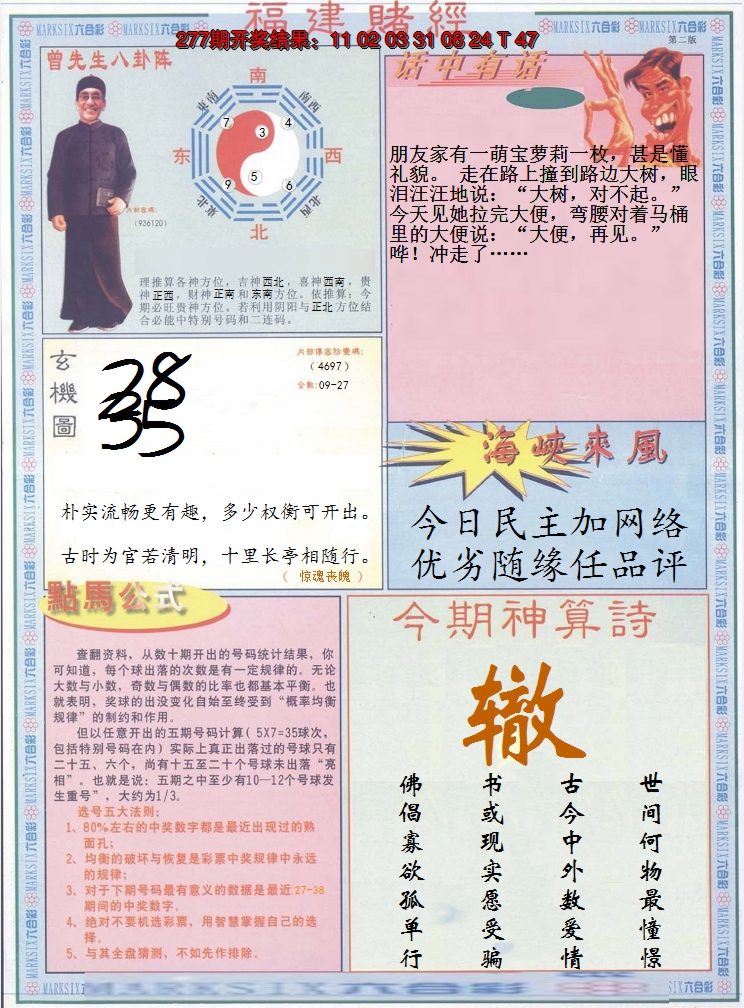 福建賭經
277期开奖结果：11 02 03 31 08 24 T 47
第二版
MARKSIX六合彩
曾先生八卦阵
南
東南
西南
7
3
4
东
西
9
5
6
東北
西北
北
內部密碼:
(936120)
理推算各神方位，吉神西北，喜神西南，贵
神正西，财神正南和东南方位。依推算：今
期必旺贵神方位。若利用阴阳与正北方位结
合必能中特别号码和二连码。
话中有话
朋友家有一萌宝萝莉一枚，甚是懂
礼貌。 走在路上撞到路边大树，眼
泪汪汪地说：“大树，对不起。”
今天见她拉完大便，弯腰对着马桶
里的大便说：“大便，再见。”
哗！冲走了……
玄機圖
38
35
(4697)
合數:09-27
朴实流畅更有趣，多少权衡可开出。
古时为官若清明，十里长亭相随行。
（ 惊魂丧魄 ）
海峽來風
今日民主加网络
优劣随缘任品评
點馬公式
查翻资料，从数十期开出的号码统计结果，你
可知道，每个球出落的次数是有一定规律的。无论
大数与小数，奇数与偶数的比率也都基本平衡。也
就表明，奖球的出没变化自始至终受到“概率均衡
规律”的制约和作用。
但以任意开出的五期号码计算( 5X7=35球次，
包括特别号码在内) 实际上真正出落过的号球只有
二十五、六个，尚有十五至二十个号球未出落“亮
相”。也就是说：五期之中至少有10—12个号球发
生重号”，大约为1/3。
选号五大法则：
1、80%左右的中奖数字都是最近出现过的熟
面孔；
2、均衡的破坏与恢复是彩票中奖规律中永远
的规律；
3、对于下期号码最有意义的数据是最近27-38
期间的中奖数字。
4、绝对不要机选彩票，用智慧掌握自己的选
择。
5、与其全盘猜测，不如先作排除。
今期神算詩
辙
世间何物最憧憬
古今中外数爱情
书或现实愿受骗
佛倡寡欲孤单行